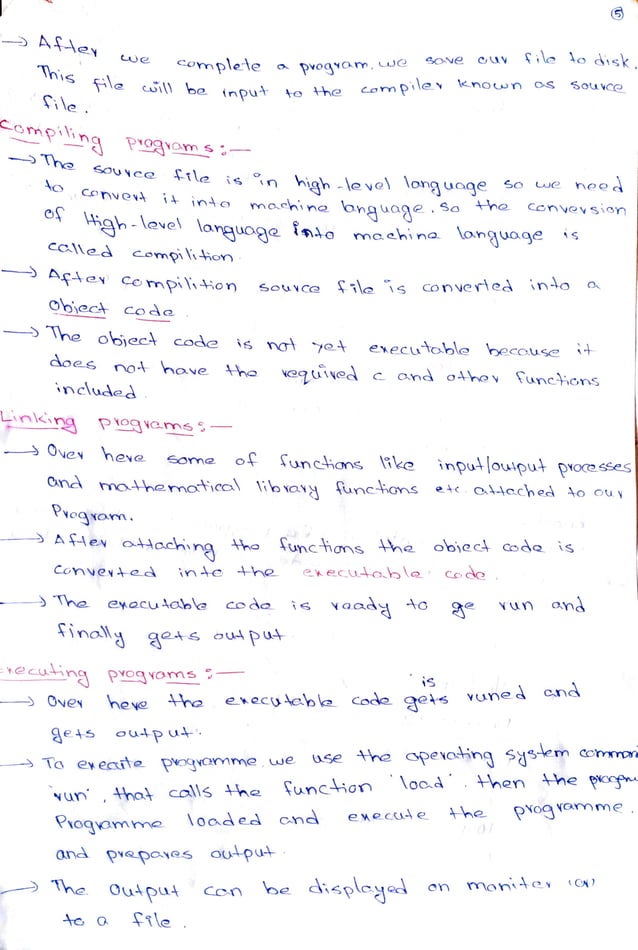 5
→ After we complete a program, we save our file to disk.
This file will be input to the compiler known as source
file.
Compiling programs:—
→ The source file is in high-level language so we need
to convert it into machine language. So the conversion
of High-level language into machine language is
called compilition.
→ After compilition source file is converted into a
Object code.
→ The object code is not yet executable because it
does not have the required c and other functions
included.
Linking programs:—
→ Over here some of functions like input/output processes
and mathematical library functions etc. attached to our
Program.
→ After attaching the functions the object code is
converted into the executable code.
→ The executable code is ready to ge run and
finally gets output.
Executing programs:—
is
→ Over here the executable code gets runed and
gets output.
→ To execute programme, we use the operating system
'run', that calls the function 'load'. then the
Programme loaded and execute the programme.
and prepares output.
→ The output can be displayed on moniter (or)
to a file.